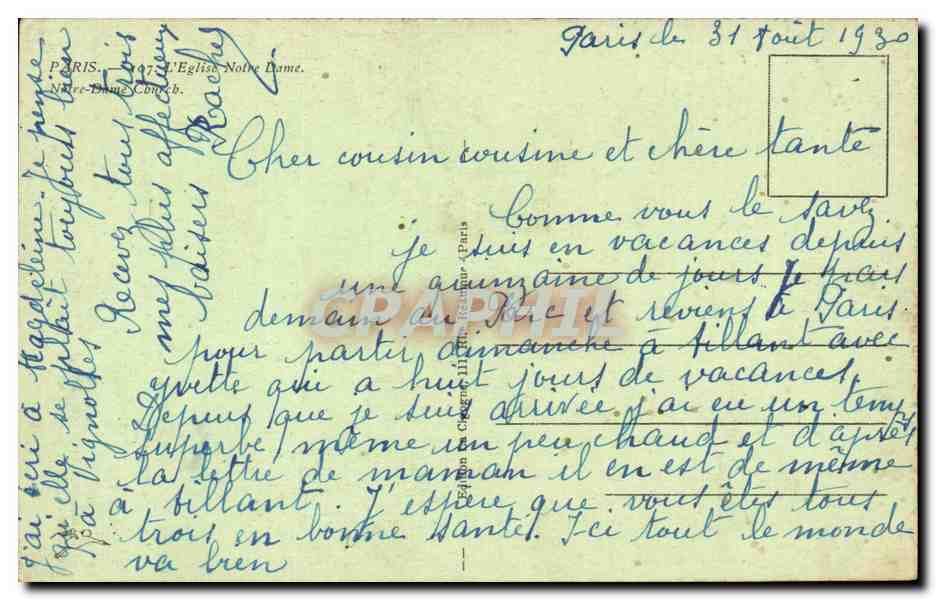 Paris le 31 Août 1930
PARIS. — 107. L'Eglise Notre Dame.
Notre-Dame Church.
Cher cousin cousine et chère tante
Comme vous le savez
je suis en vacances depuis
une quinzaine de jours je pars
demain au Parc et reviens à Paris
pour partir dimanche à Sillant avec
Yvette qui a huit jours de vacances.
Depuis que je suis arrivée j'ai eu un temps
superbe, même un peu chaud et d'après
la lettre de maman il en est de même
à Sillant. J'espère que vous êtes tous
trois en bonne santé. Ici tout le monde
va bien
J'ai écri à Magdeleine. Je pense
qu'elle se plaît toujours bien
à Vignolles
Recevez tous trois
mes plus affectueux
baisers Rachel
Edition Réaumur, Paris
CARPHIL